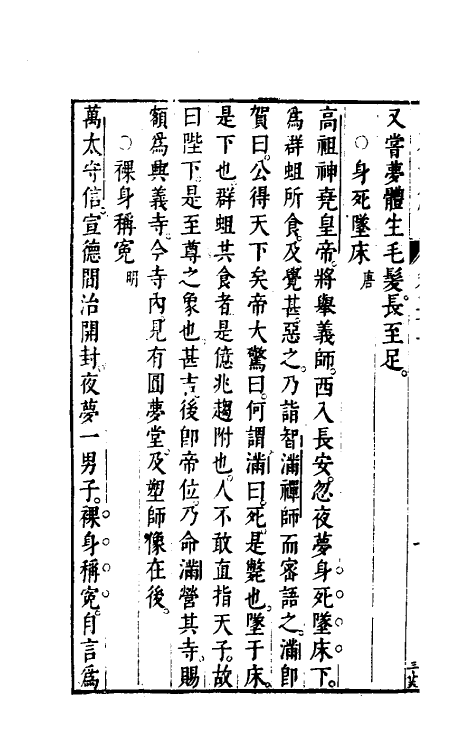 又嘗夢體生毛髮。長至足。
○身死墜床 唐
高祖神堯皇帝。將舉義師。西入長安。忽夜夢身死墜床下。
爲群蛆所食。及覺甚惡之。乃詣智滿禪師而密語之。滿即
賀曰。公得天下矣。帝大驚曰。何謂。滿曰。死是斃也。墜于床。
是下也。群蛆共食者。是億兆趨附也。人不敢直指天子。故
曰陛下。是至尊之象也。甚吉。後即帝位。乃命滿營其寺。賜
額爲興義寺。今寺內見有圓夢堂。及塑師像在後。
○裸身稱寃 明
萬太守信。宣德間治開封。夜夢一男子。裸身稱寃。自言爲